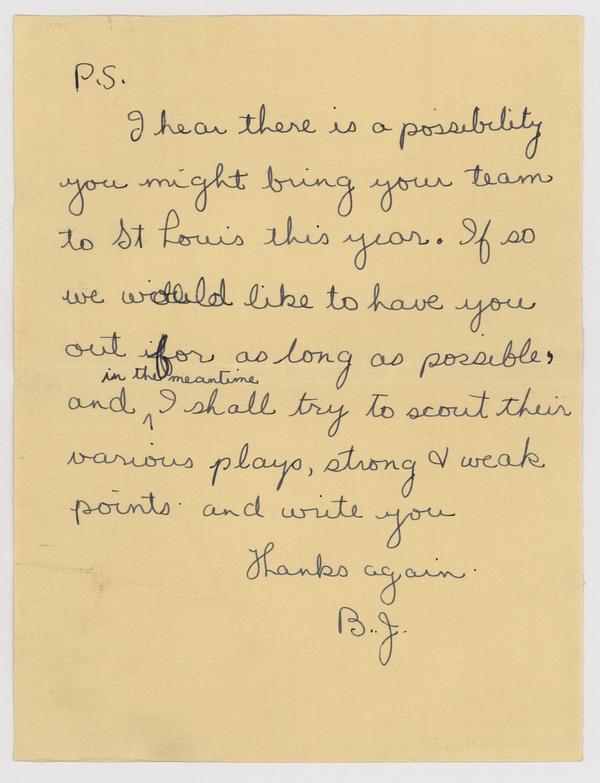 P.S.
I hear there is a possibility
you might bring your team
to St Louis this year. If so
we would like to have you
out for as long as possible,
in the meantime
and I shall try to scout their
various plays, strong & weak
points and write you
Thanks again.
B.J.